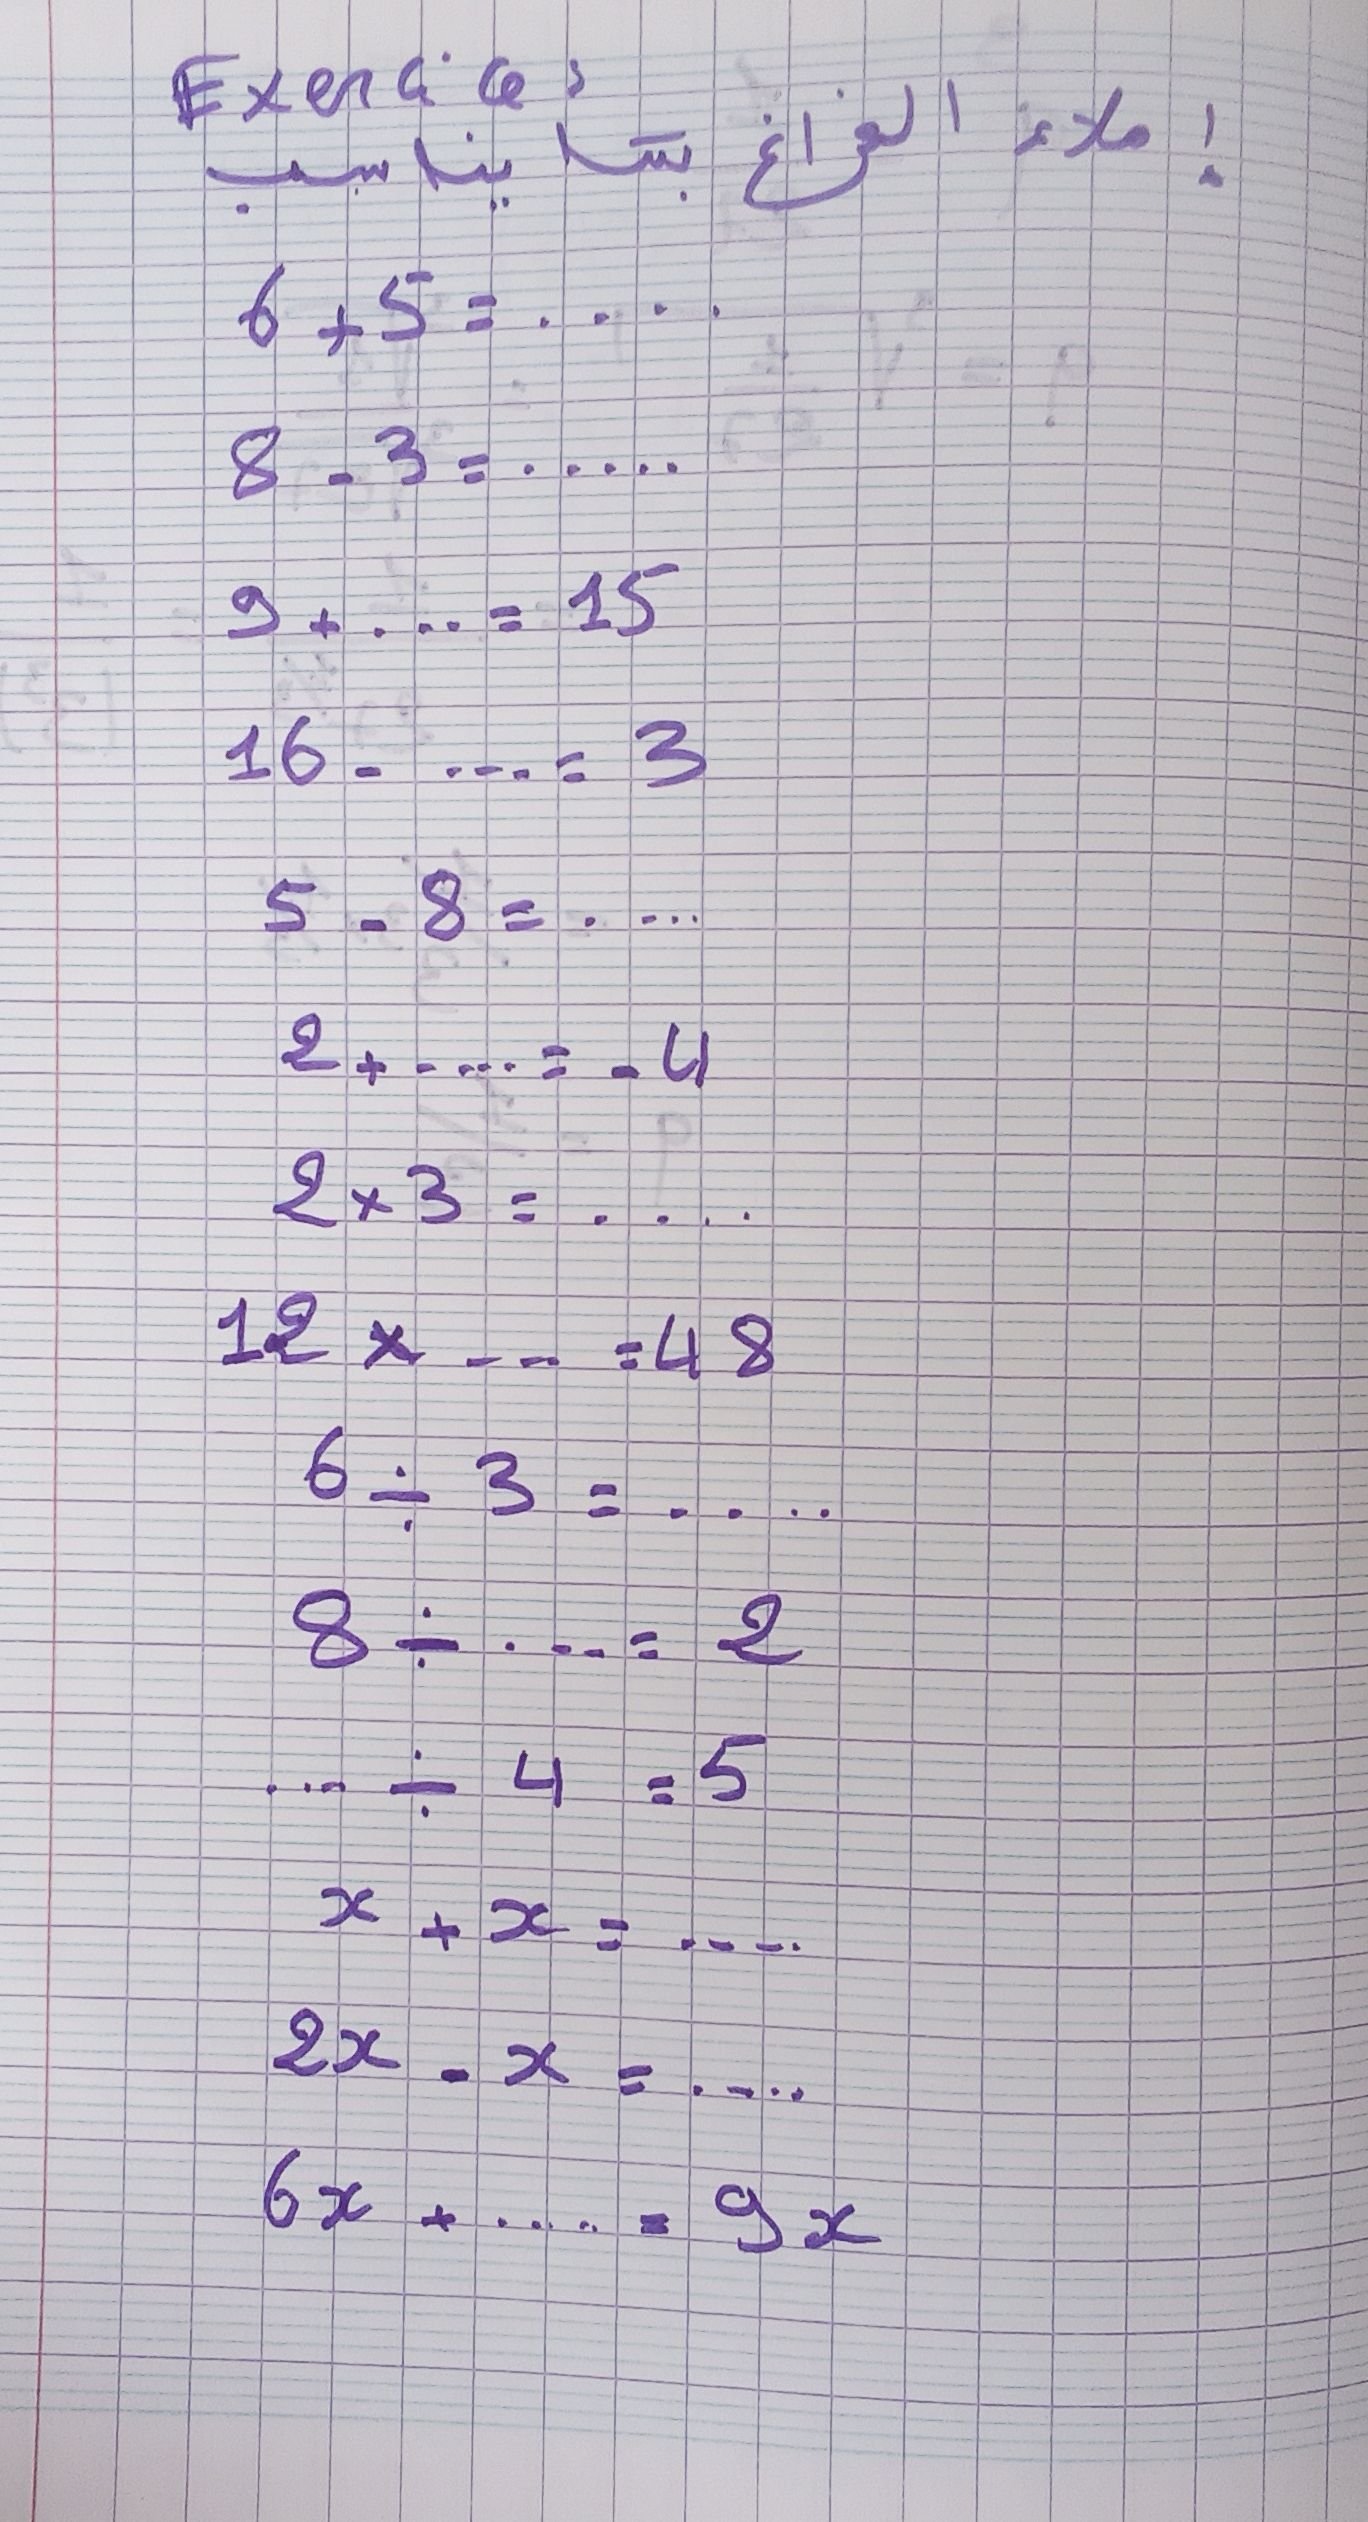 Exercice :
إملاء الفراغ بما يناسب
6 + 5 = ....
8 - 3 = ......
9 + .... = 15
16 - .... = 3
5 - 8 = .....
2 + ..... = - 4
2 × 3 = ....
12 × ... = 48
6 ÷ 3 = ....
8 ÷ .... = 2
.... ÷ 4 = 5
x + x = ....
2x - x = ....
6x + ..... = 9x